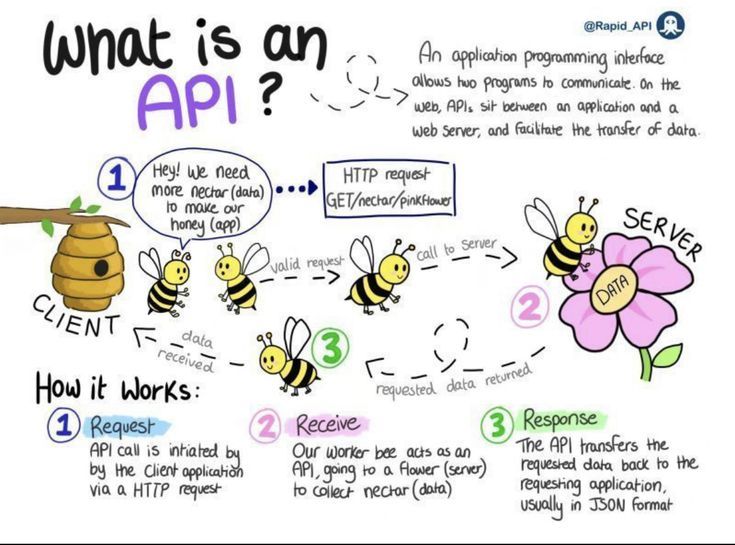 What is an
API?
@Rapid_API
An application programming interface
allows two programs to communicate. On the
web, APIs sit between an application and a
web server, and facilitate the transfer of data.
1
Hey! We need
more nectar (data)
to make our
honey (app)
HTTP request
GET/nectar/pinkflower
CLIENT
valid request
call to server
SERVER
DATA
2
data
received
3
requested data returned
How it works:
1 Request
API call is intiated by
by the client application
via a HTTP request
2 Receive
Our worker bee acts as an
API, going to a flower (server)
to collect nectar (data)
3 Response
The API transfers the
requested data back to the
requesting application,
usually in JSON format